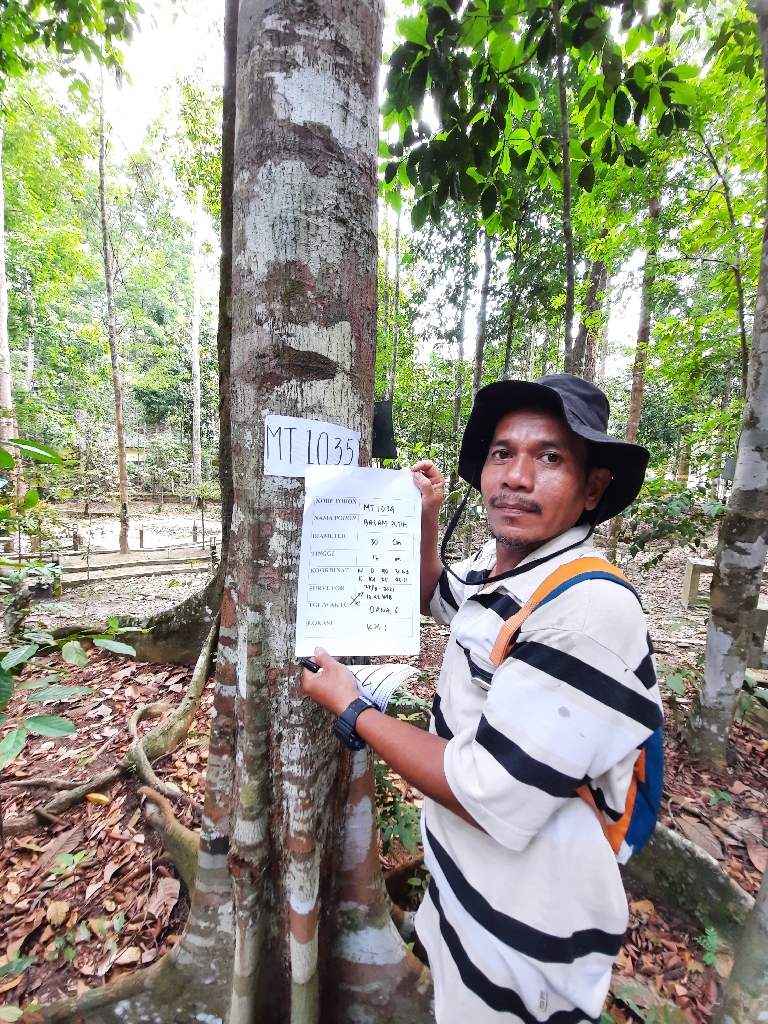 MT 1035
KODE POHON MT 1034
NAMA POHON BALAM PUTIH
DIAMETER 30 Cm
TINGGI 14 m
KOORDINAT N 0
E
SURVEYOR
TGL/WAKTU DANA.S
LOKASI KM 1